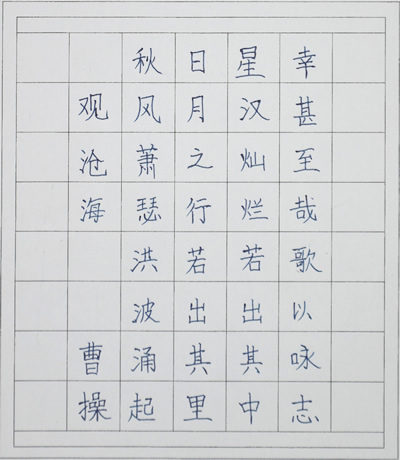 观沧海 曹操
秋风萧瑟洪波涌起
日月之行若出其里
星汉灿烂若出其中
幸甚至哉歌以咏志